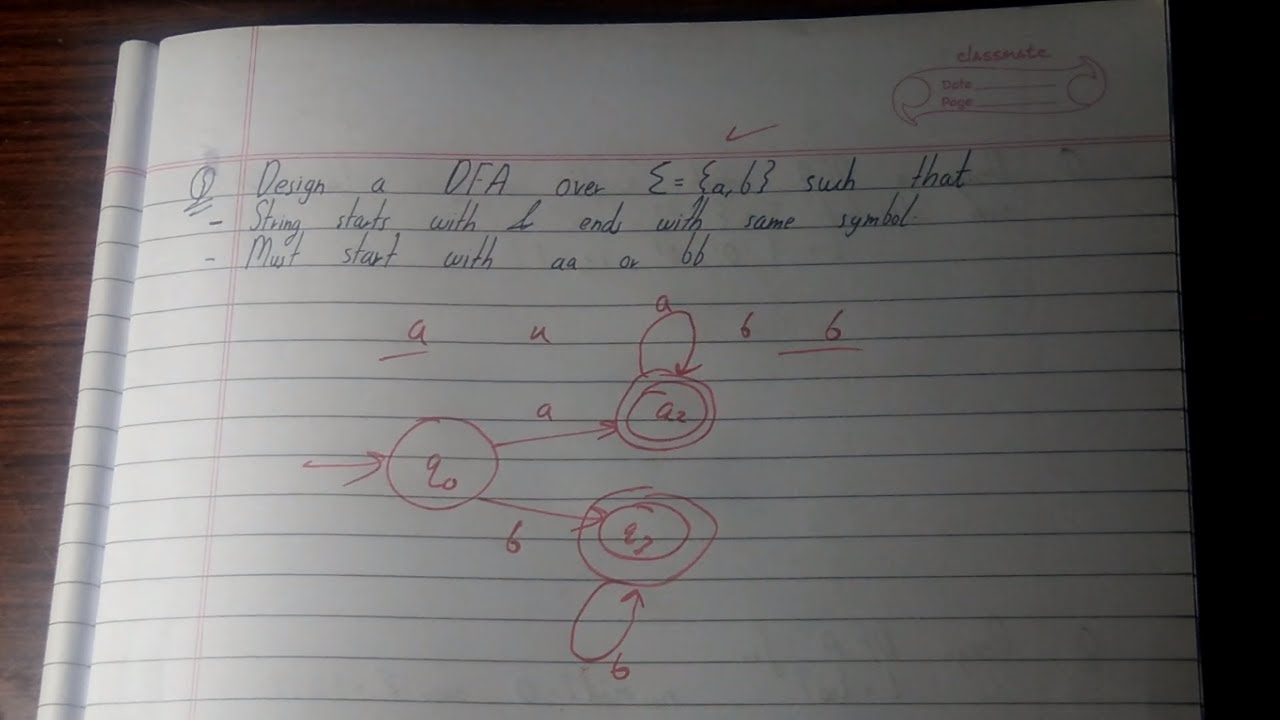 classmate
Date
Page
Q Design a DFA over Σ = {a, b} such that
- String starts with & ends with same symbol.
- Must start with aa or bb
a
a b b
a
a2
q0
b
q3
b